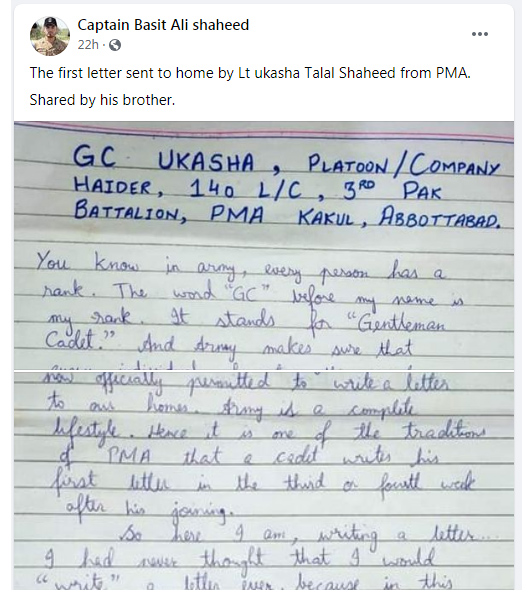 Captain Basit Ali shaheed
22h ·
The first letter sent to home by Lt ukasha Talal Shaheed from PMA.
Shared by his brother.
GC UKASHA, PLATOON/COMPANY
HAIDER, 140 L/C, 3RD PAK
BATTALION, PMA KAKUL, ABBOTTABAD.
You know in army, every person has a
rank. The word "GC" before my name is
my rank. It stands for "Gentleman
Cadet." And Army makes sure that
now officially permitted to write a letter
to our homes. Army is a complete
lifestyle. Hence it is one of the traditions
of PMA that a cadet writes his
first letter in the third or fourth week
after his joining.
So here I am, writing a letter...
I had never thought that I would
"write" a letter ever, because in this